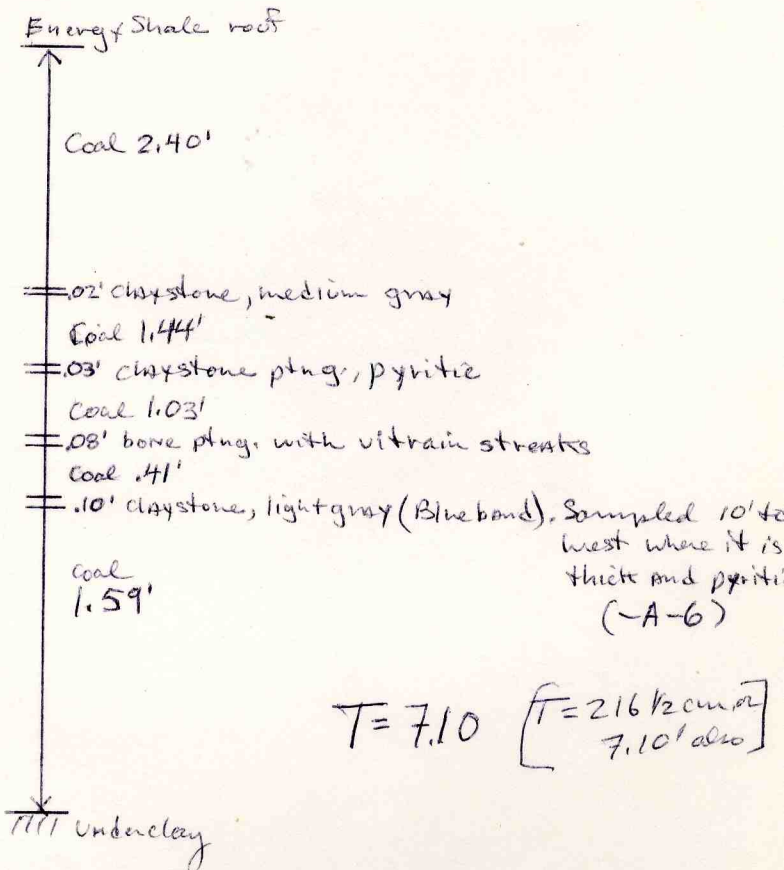 Energy Shale roof
Coal 2.40'
.02' claystone, medium gray
Coal 1.44'
.03' claystone ptng., pyritic
Coal 1.03'
.08' bone ptng. with vitrain streaks
Coal .41'
.10' claystone, light gray (Blueband). Sampled 10' to
west where it is
thick and pyriti
(-A-6)
coal
1.59'
T = 7.10
[T = 216 1/2 cm, or
7.10' also]
underclay